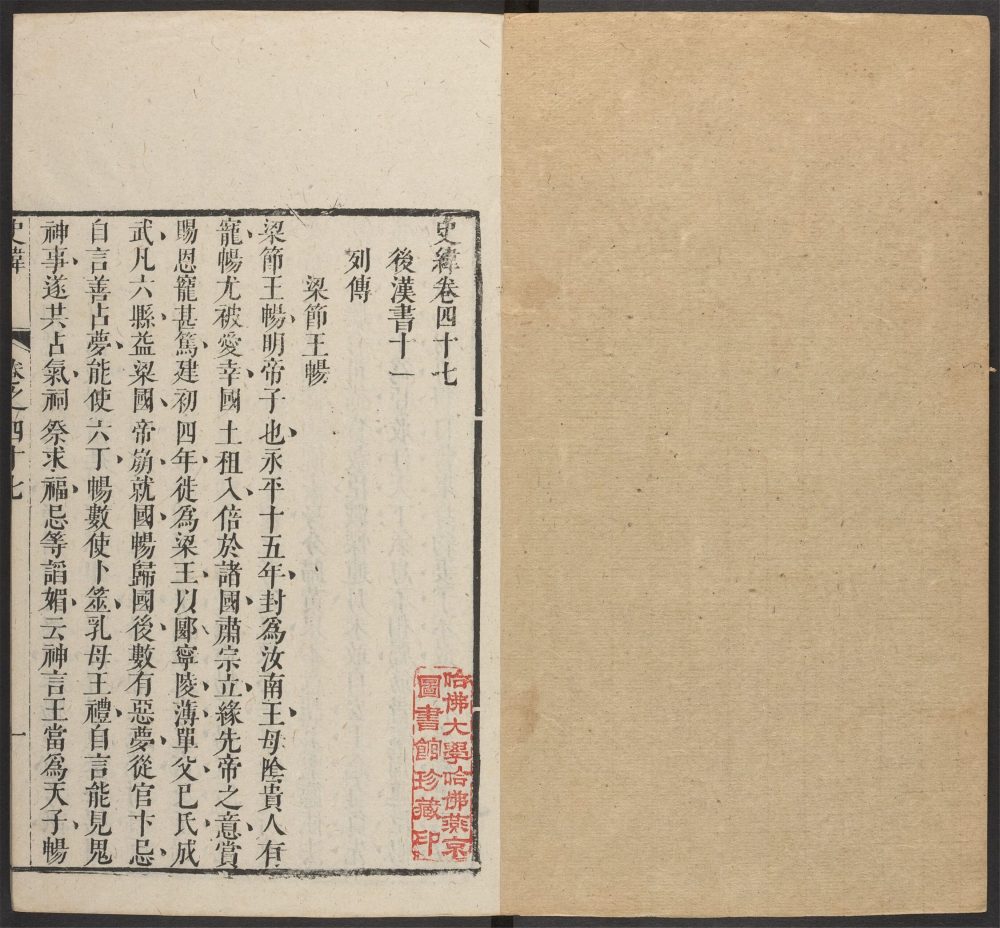 史緯卷四十七
後漢書十一
列傳
梁節王暢
梁節王暢明帝子也永平十五年封爲汝南王母陰貴人有
寵暢尤被愛幸國土租入倍於諸國肅宗立緣先帝之意賞
賜恩寵甚篤建初四年徙爲梁王以郾寧陵薄單父巳氏成
武凡六縣益梁國帝崩就國暢歸國後數有惡夢從官卞忌
自言善占夢能使六丁暢數使卜筮乳母王禮自言能見鬼
神事遂共占氣祠祭求福忌等諂媚云神言王當爲天子暢
史緯
卷之四十七
一
哈佛大學哈佛燕京
圖書館珍藏印